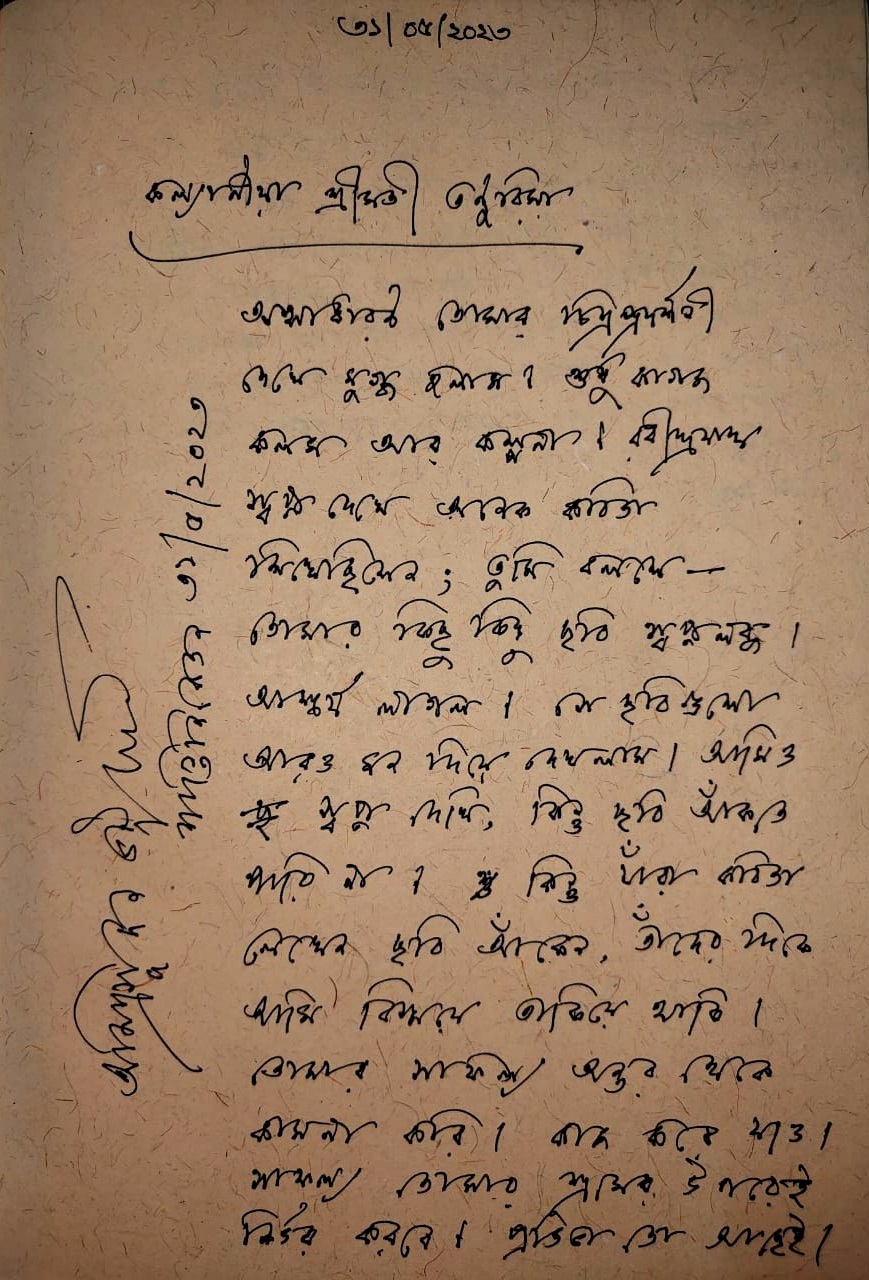 ৩১/০৫/২০২৩
কল্যাণীয়া শ্রীমতী তনুরিমা
তোমার চিত্রপ্রদর্শনী
দেখে মুগ্ধ হলাম। শুধু কাগজ
কলম আর কল্পনা। রবীন্দ্রনাথ
স্বপ্ন দেখে অনেক কবিতা
লিখেছিলেন; তুমি বললে—
তোমার কিছু কিছু ছবি স্বপ্নলব্ধ।
আশ্চর্য লাগল। সে ছবিগুলো
আরও মন দিয়ে দেখলাম। আমিও
স্বপ্ন দেখি, কিন্তু ছবি আঁকতে
পারি না। কিন্তু যাঁরা কবিতা
লেখেন ছবি আঁকেন, তাঁদের দিকে
আমি বিস্ময়ে তাকিয়ে থাকি।
তোমার সাফল্য অন্তর থেকে
কামনা করি। কাজ করে যাও।
সাফল্য তোমার শ্রমের উপরেই
নির্ভর করবে। প্রতিভা তো আছেই।
শান্তিনিকেতন ৩১/৫/২০২৩